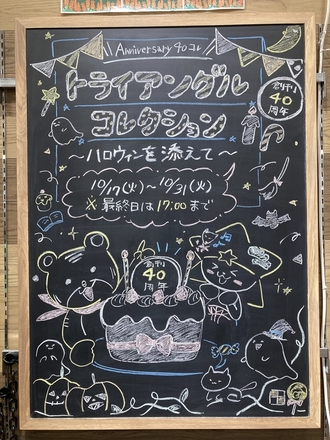 Anniversary 40コレ
トライアングル
コレクション
創刊
40
周年
～ハロウィンを添えて～
10/17(火)～10/31(火)
※最終日は17:00まで
創刊
40
周年